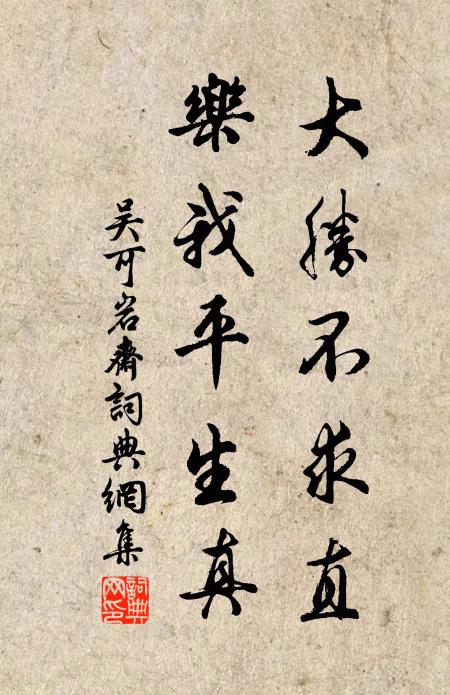 大勝不求直
樂我平生真
吴可岩齋詞典網集
詞典
网印